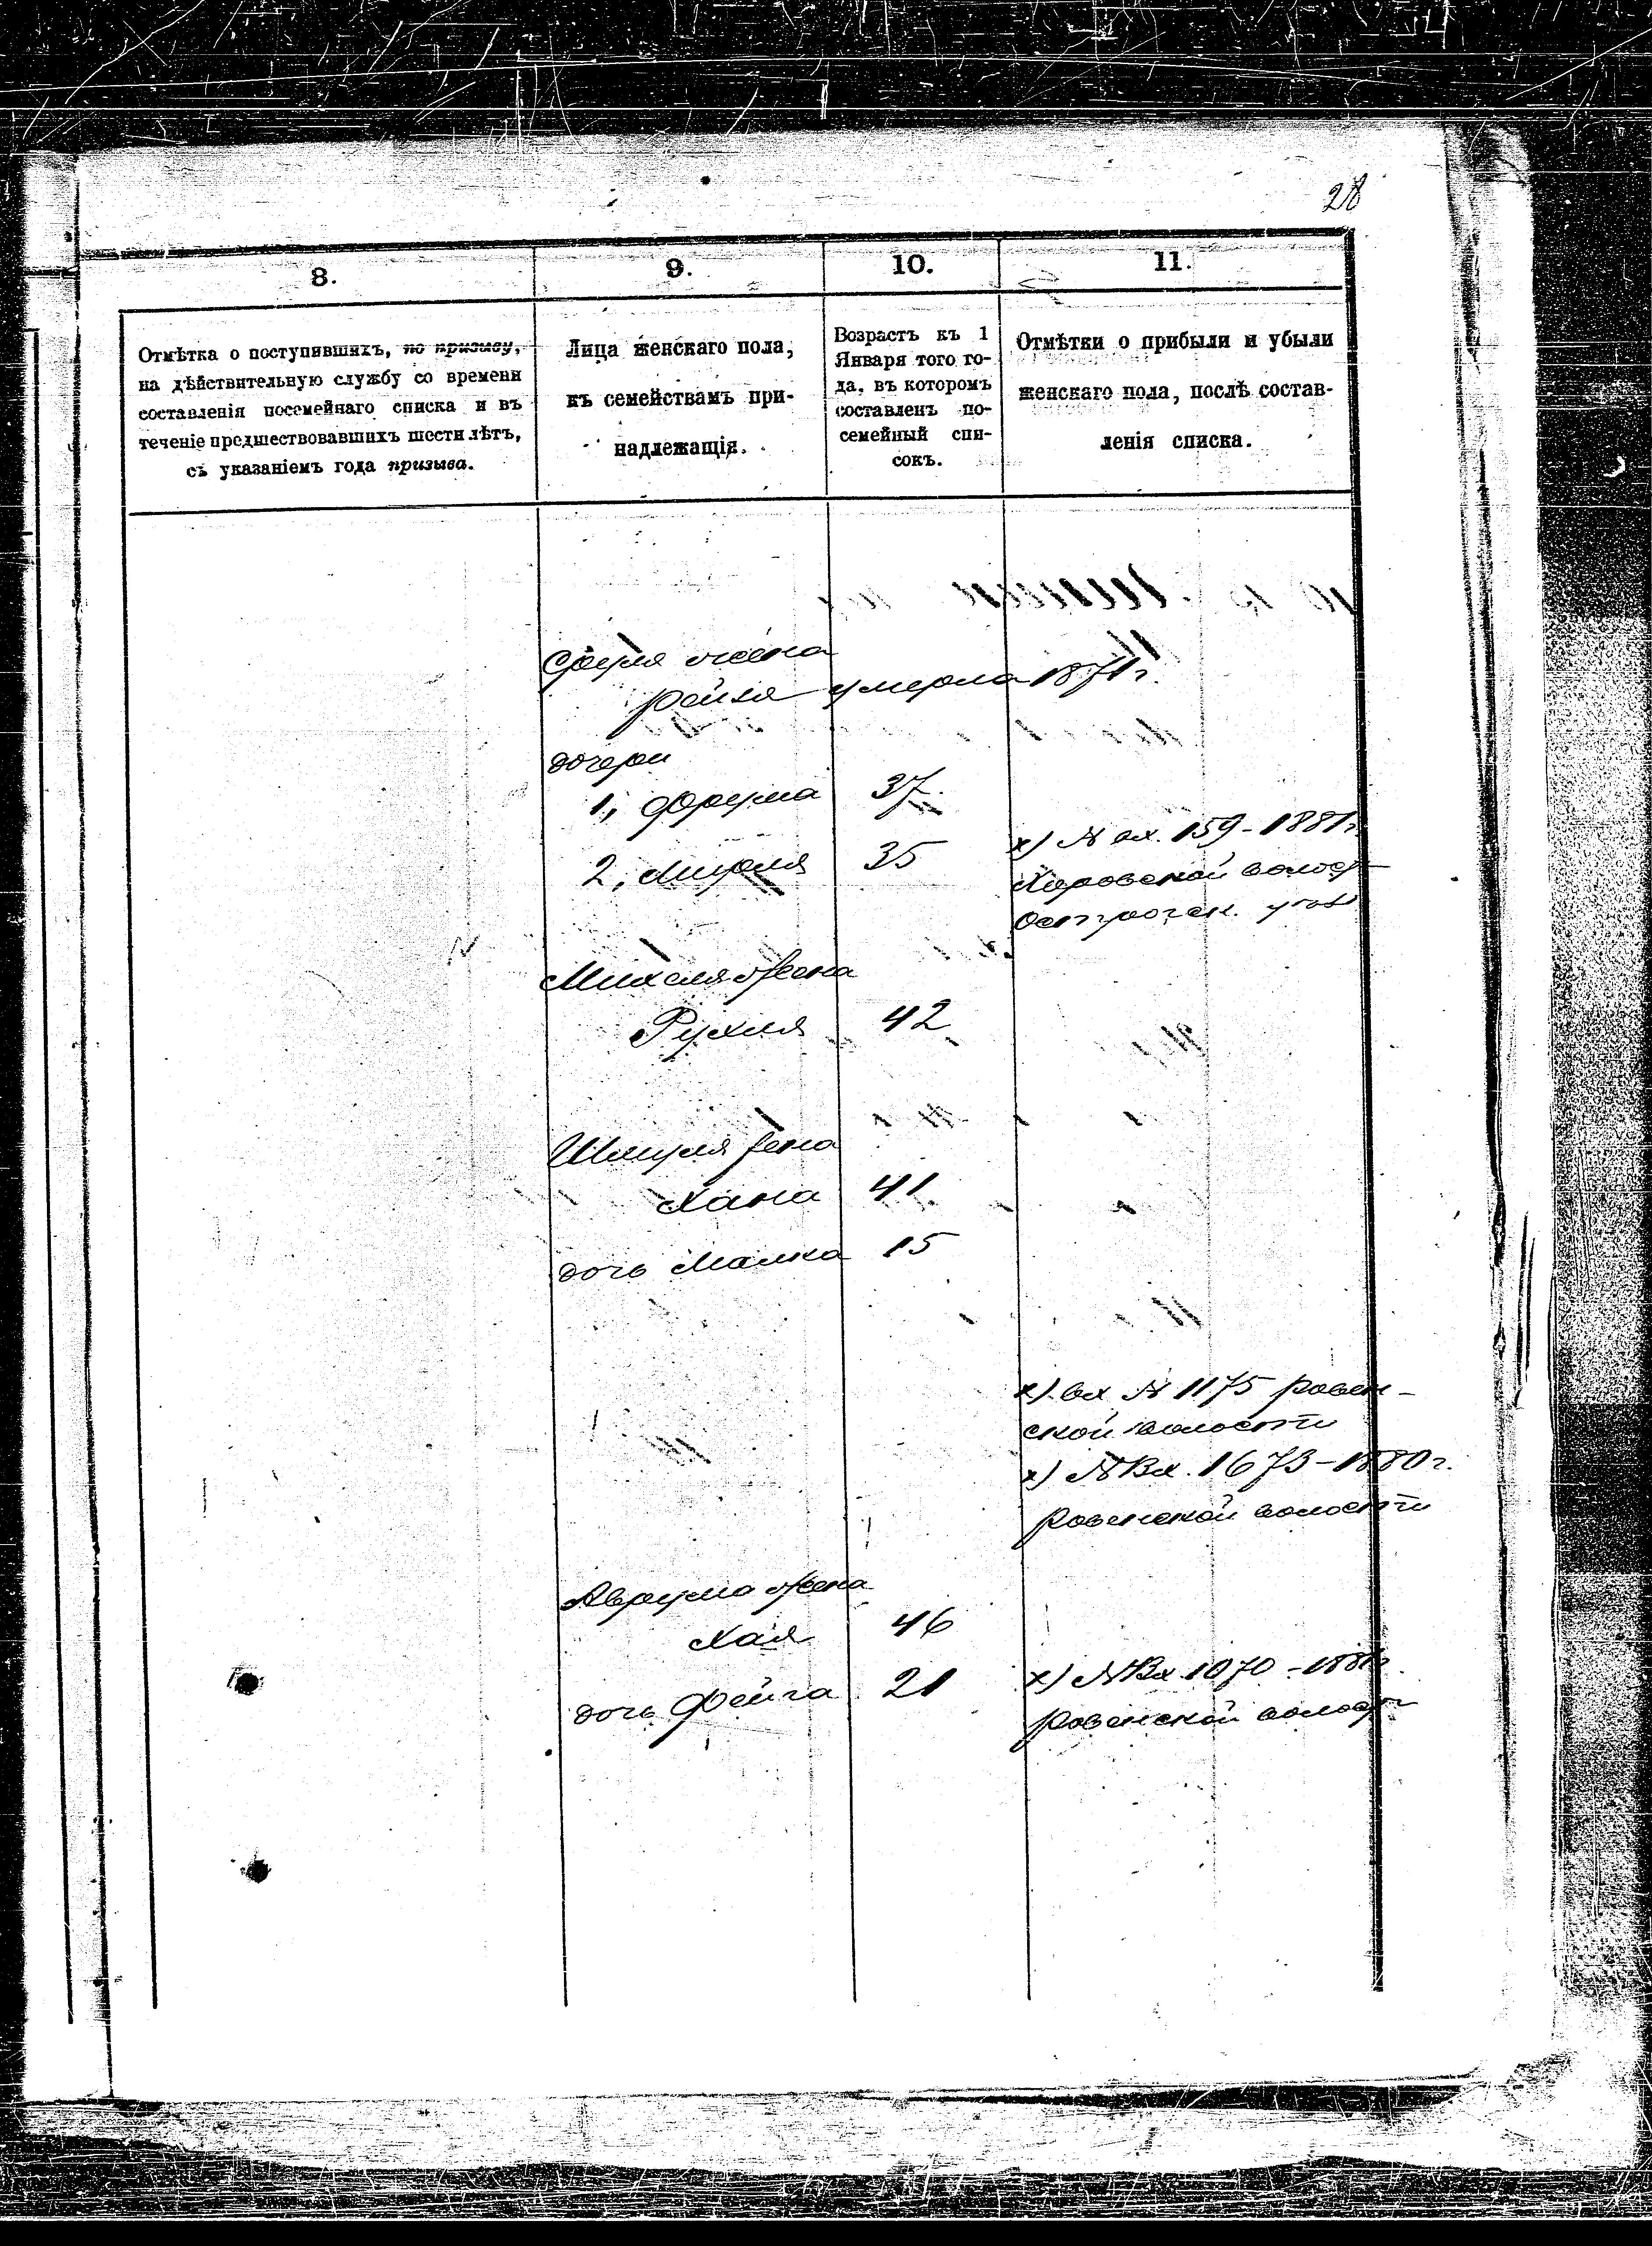 28
8.
9.
10.
11.
Отмѣтка о поступившихъ, по призыву,
на дѣйствительную службу со времени
составленія посемейнаго списка и въ
теченіе предшествовавшихъ шести лѣтъ,
съ указаніемъ года призыва.
Лица женскаго пола,
къ семействамъ при-
надлежащія.
Возрастъ къ 1
Января того го-
да, въ которомъ
составленъ по-
семейный спи-
сокъ.
Отмѣтки о прибыли и убыли
женскаго пола, послѣ состав-
ленія списка.
Сруля жена
Рейзя умерла 1871 г.
дочери
1, Фрума 37
2, Мирля 35
х) № вх. 159 - 1881 г.
волост
Михеля жена
Рухля 42
Шмуля жена
Хана 41
дочь Малка 15
х) вх № 1175 Ровен-
ской волости
х) № Вх. 1673 - 1880 г.
Ровенской волости
Аврума жена
Хая 46
дочь Фейга 21
х) № Вх 1070 - 1881 г.
Ровенской волост